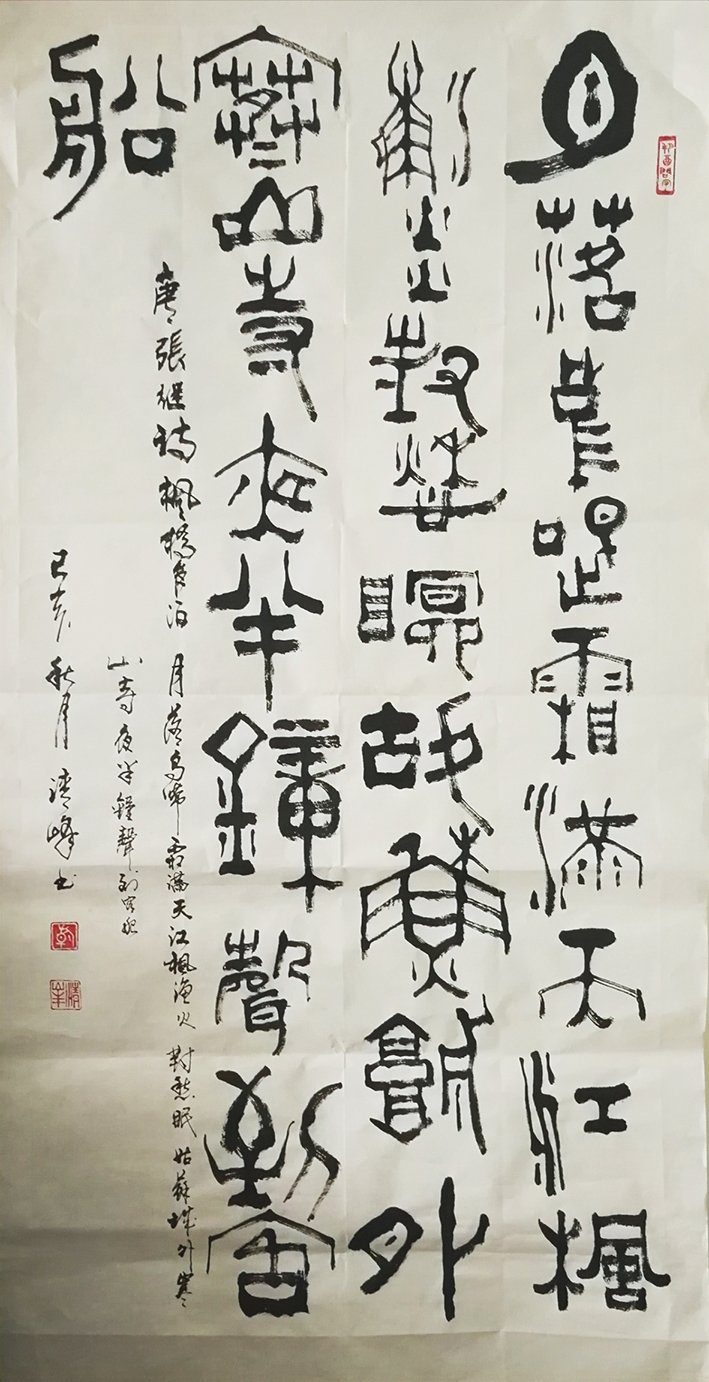 月落烏啼霜滿天江楓
漁火對愁眠姑蘇城外
寒山寺夜半鐘聲到客
船
唐張継詩楓橋夜泊 月落烏啼霜滿天江楓漁火對愁眠姑蘇城外寒
山寺夜半鐘聲到客船
己亥秋月清峰书